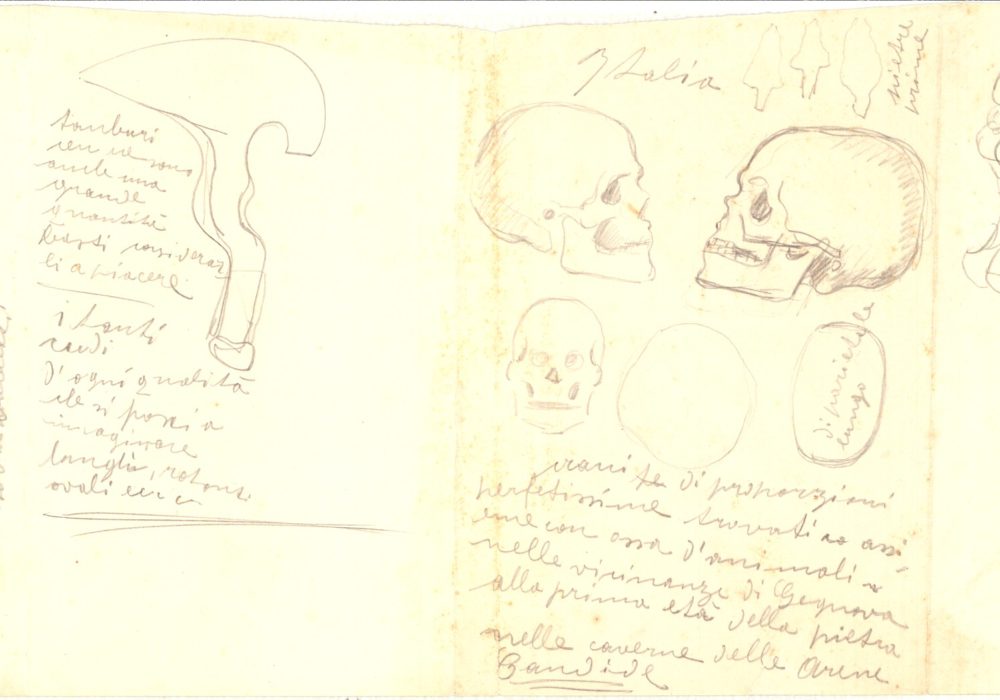 tamburi
ce ne sono
anche una
grande
quantità
basti considerar
li a piacere
i tanti
d'ogni qualità
che si possi a
immaginare
lunghi, rotonti
ovali
Italia
pietre
prime
di parietale
lungo
crani di proporzioni
perfetissime trovati assi
eme con ossa d'animali
nelle vicinanze di Gegnova
alla prima età della pietra
nelle caverne delle Arene
Candide